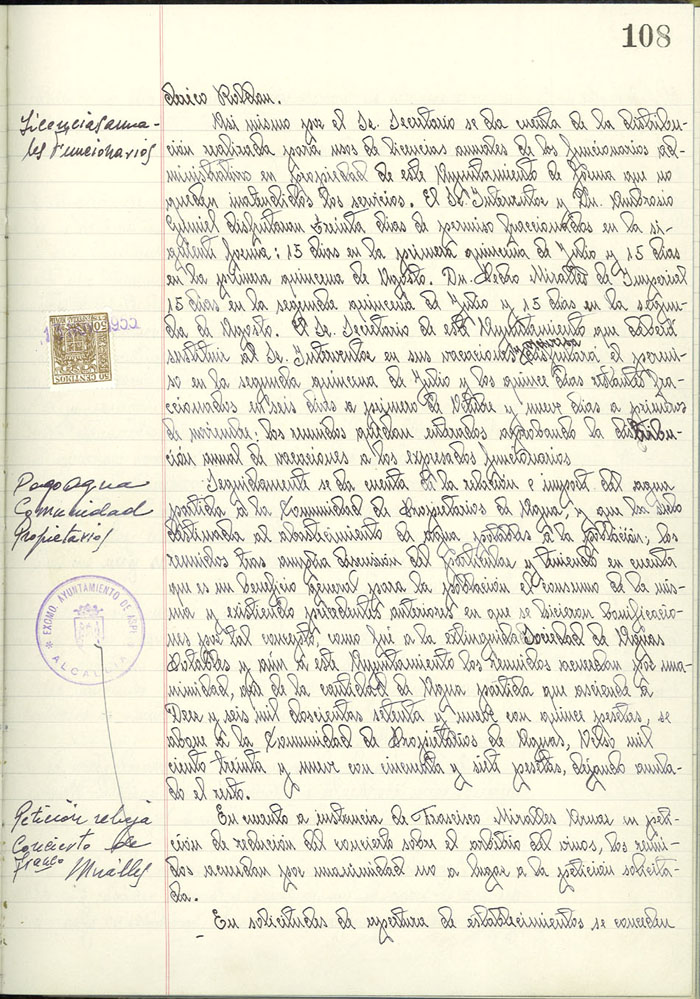 108
derico Roldan.
Licencias anua-
les Funcionarios
Asi mismo por el Sr. Secretario se da cuenta de la distribu-
ción realizada para usos de licencias anuales de los funcionarios ad-
ministrativos en propiedad de este Ayuntamiento de forma que no
queden inatendidos los servicios. El Sr. Interventor y Dn. Ambrosio
disfrutaran treinta dias de permiso fraccionados en la si-
guiente forma: 15 dias en la primera quincena de Julio y 15 dias
en la primera quincena de Agosto. Dn. Pedro Miralles de Imperial
15 dias en la segunda quincena de Julio y 15 dias en la segun-
da de Agosto. El Sr. Secretario de este Ayuntamiento que deberá
sustituir al Sr. Interventor en sus vacaciones disfrutará el permi-
so en la segunda quincena de Julio y los quince dias restantes fra-
ccionados en seis dias a primero de Octubre y nueve dias a primeros
de noviembre. Los reunidos quedan enterados aprobando la distribu-
ción anual de vacaciones a los expresados funcionarios
50 CENTIMOS
Pago agua
Comunidad
Propietarios
Seguidamente se da cuenta de la relación e import del agua
partida a la Comunidad de Propietarios de Agua, y que ha sido
destinada al abastecimiento de agua potables a la población, los
reunidos tras amplia discusión del particular y teniendo en cuenta
que es un beneficio general para la población el consumo de la mis-
ma y existiendo precedentes anteriores en que se hicieron bonificacio-
nes por tal concepto, como fué a la extinguida Sociedad de Aguas
Potables y aún a este Ayuntamiento los reunidos acuerdan por una-
nimidad, que de la cantidad de Agua partida que asciende a
Diez y seis mil doscientas setenta y nueve con quince pesetas, se
abone a la Comunidad de Propietarios de Aguas, Ocho mil
ciento treinta y nueve con cincuenta y siete pesetas, dejando anula-
do el resto.
EXCMO. AYUNTAMIENTO DE ASPE
ALCALDIA
Petición rebaja
Concierto de
Franco Miralles
En cuento a instancia de Francisco Miralles Arnau in peti-
ción de reducion del concierto sobre el arbitrio del vinos, los reuni-
dos acuerdan por unanimidad no a lugar a la peticion solicita-
da.
En solicitudes de apertura de establecimientos se conceden